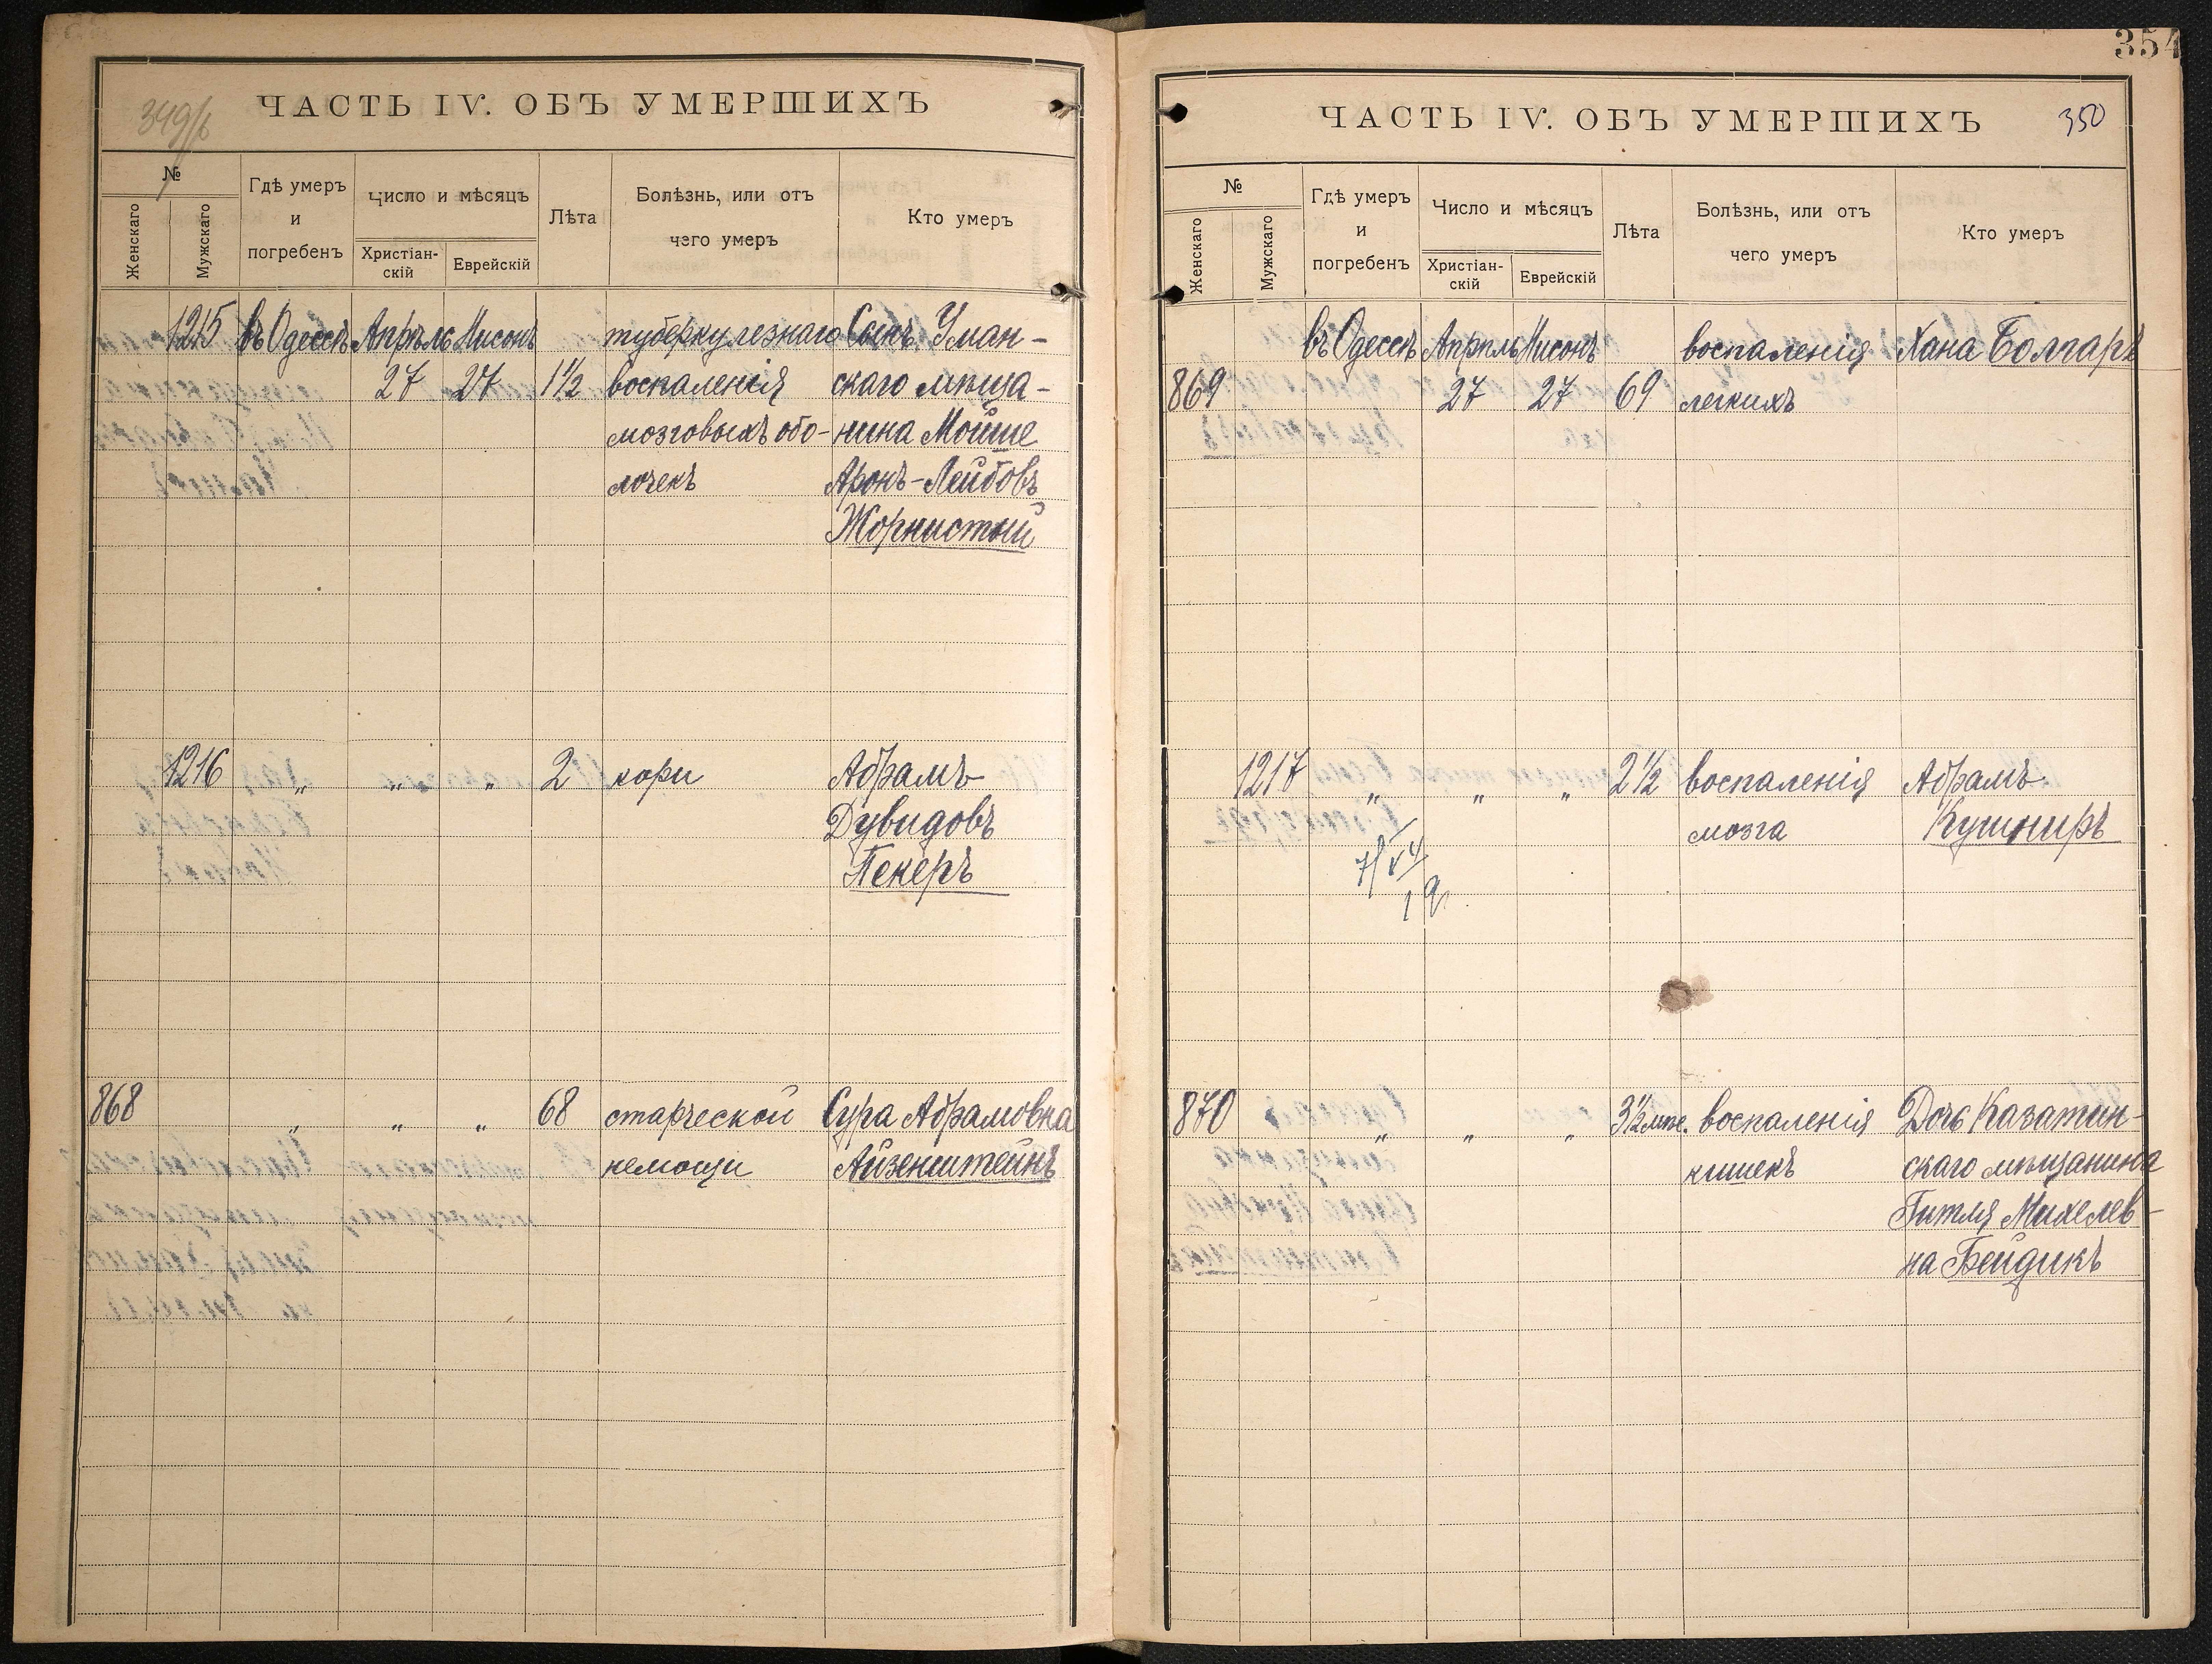 349/б
ЧАСТЬ IV. ОБЪ УМЕРШИХЪ
№
Женскаго
Мужскаго
Гдѣ умеръ
и
погребенъ
Число и мѣсяцъ
Христіан-
скій
Еврейскій
Лѣта
Болѣзнь, или отъ
чэго умеръ
Кто умеръ
1215 въ Одессѣ Апрѣль Нисонъ туберкулезнаго Сынъ Уман-
27 27 1½ воспаленія скаго мѣща-
мозговыхъ обо- нина Мойше
лочекъ Аронъ-Лейбовъ
Жорнистый
1216 " " " 2 кори Абрамъ
Дувидовъ
Пекеръ
868 " " " 68 старческой Сура Абрамовна
немощи Айзенштейнъ
354
ЧАСТЬ IV. ОБЪ УМЕРШИХЪ
350
№
Женскаго
Мужскаго
Гдѣ умеръ
и
погребенъ
Число и мѣсяцъ
Христіан-
скій
Еврейскій
Лѣта
Болѣзнь, или отъ
чего умеръ
Кто умеръ
въ Одессѣ Апрѣль Нисонъ воспаленія Хана Болгаръ
869 27 27 69 легкихъ
1217 " " " 2½ воспаленія Абрамъ
мозга Кушниръ
870 " " " 3½ мѣс. воспаленія Дочь Казатин-
кишекъ скаго мѣщанина
Гитля Михелев-
на Бейдикъ